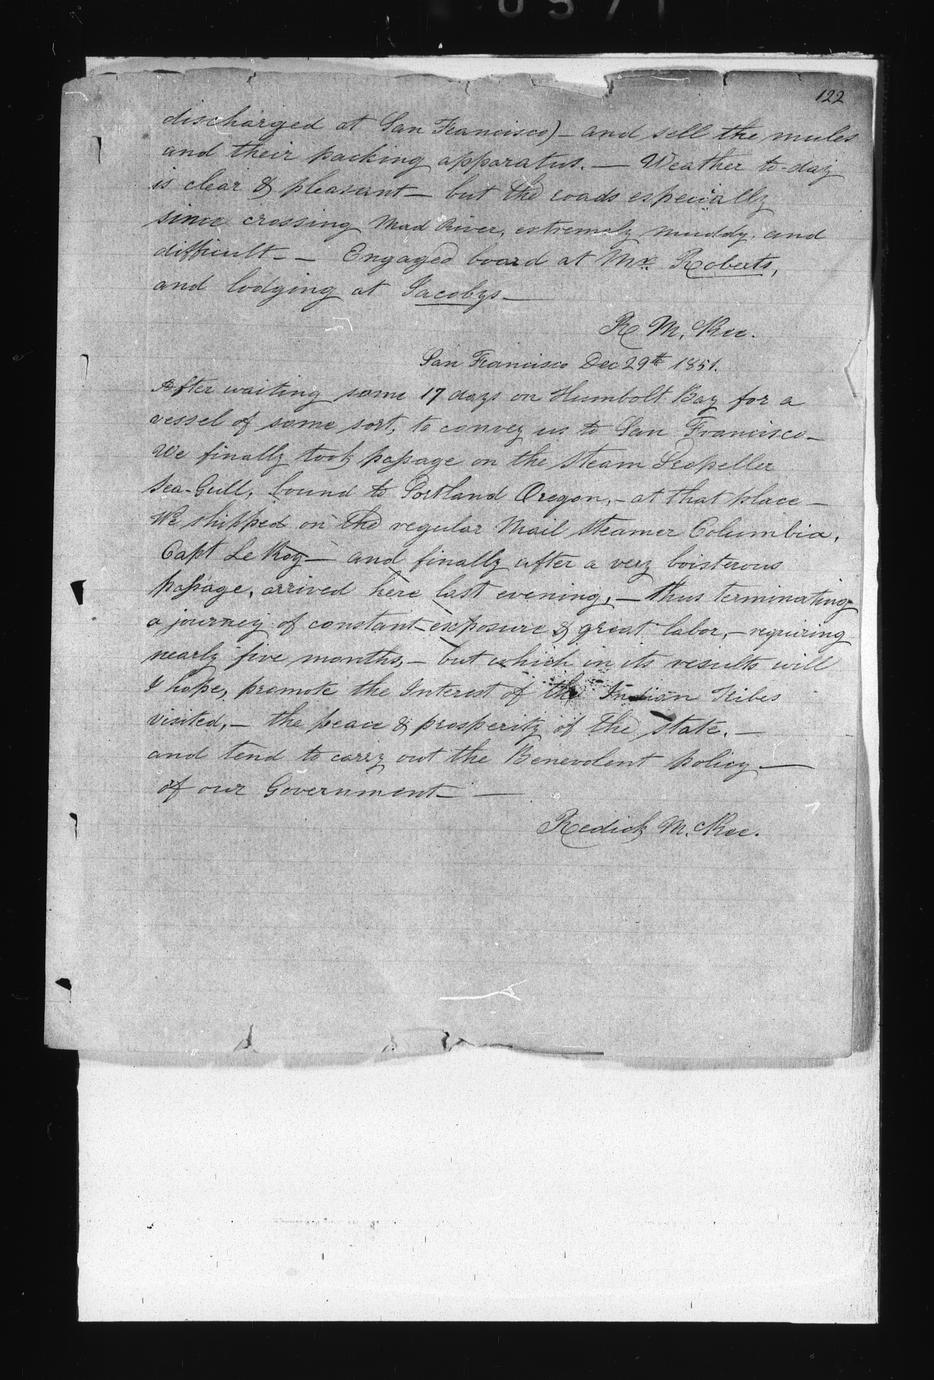 122
discharged at San Francisco) – and sell the mules
and their packing apparatus. — Weather to-day
is clear & pleasant – but the roads especially
since crossing Mad River, extremely muddy, and
difficult – – Engaged board at Mr. Roberts,
and lodging at Jacobys –
R. McKee.
San Francisco Dec 29th 1851.
After waiting some 17 days on Humbolt Bay for a
vessel of some sort, to convey us to San Francisco –
We finally took passage on the Steam Propeller
Sea-Gull, bound to Portland Oregon, – at that place –
We shipped on the regular Mail Steamer Columbia,
Capt Le Roy – and finally after a very boisterous
passage, arrived here last evening, – thus terminating
a journey of constant exposure & great labor, – requiring
nearly five months, – but which in its results will
I hope, promote the Interest of the Indian tribes
visited, – the peace & prosperity of the State. –
and tend to carry out the Benevolent policy —
of our Government – —
Redick McKee.